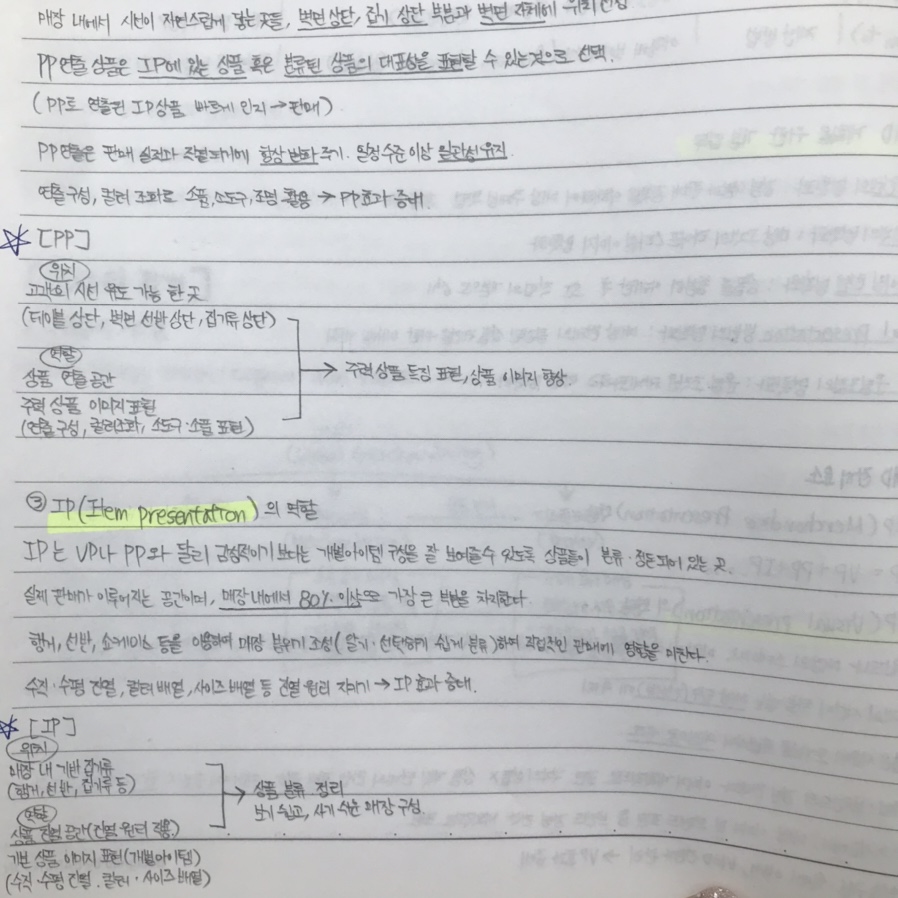 매장 내에서 시선이 자연스럽게 닿는 곳들, 벽면 상단, 집기 상단 부분과 벽면 전체에 위치 선정
PP연출 상품은 IP에 있는 상품 혹은 분류된 상품의 대표성을 표현할 수 있는 것으로 선택.
(PP로 연출된 IP상품 빠르게 인지 → 판매)
PP연출은 판매 실적과 직결되기에 항상 변화 주기. 일정 수준 이상 일관성 유지.
연출 구성, 컬러 조화로 소품, 소도구, 조명 활용 → PP효과 증대.
☆ [PP]
위치
고객의 시선 유도 가능 한 곳
(테이블 상단, 벽면 선반 상단, 집기류 상단)
역할
상품 연출 공간
→ 주력 상품 특징 표현, 상품 이미지 향상
주력 상품 이미지 표현
(연출 구성, 컬러조화, 소도구·소품 표현)
③ IP(Item presentation)의 역할
IP는 VP나 PP와 달리 감성적이기 보다는 개별아이템 구성을 잘 보여줄수 있도록 상품들이 분류·정돈되어 있는 곳.
실제 판매가 이루어지는 공간이며, 매장 내에서 80% 이상으로 가장 큰 부분을 차지한다.
행거, 선반, 쇼케이스 등을 이용하여 매장 분위기 조성(알기·선택하게 쉽게 분류)하여 직접적인 판매에 영향을 미친다.
수직·수평 진열, 컬러 배열, 사이즈 배열 등 진열 원리 지키기 → IP효과 증대.
☆ [IP]
위치
매장 내 기반 집기류
(행거, 선반, 집기류 등)
→ 상품 분류 정리
보기 쉽고, 사기 쉬운 매장 구성.
역할
상품 진열 공간(진열 원리 적용)
기본 상품 이미지 표현(개별아이템)
(수직·수평 진열. 컬러·사이즈 배열)